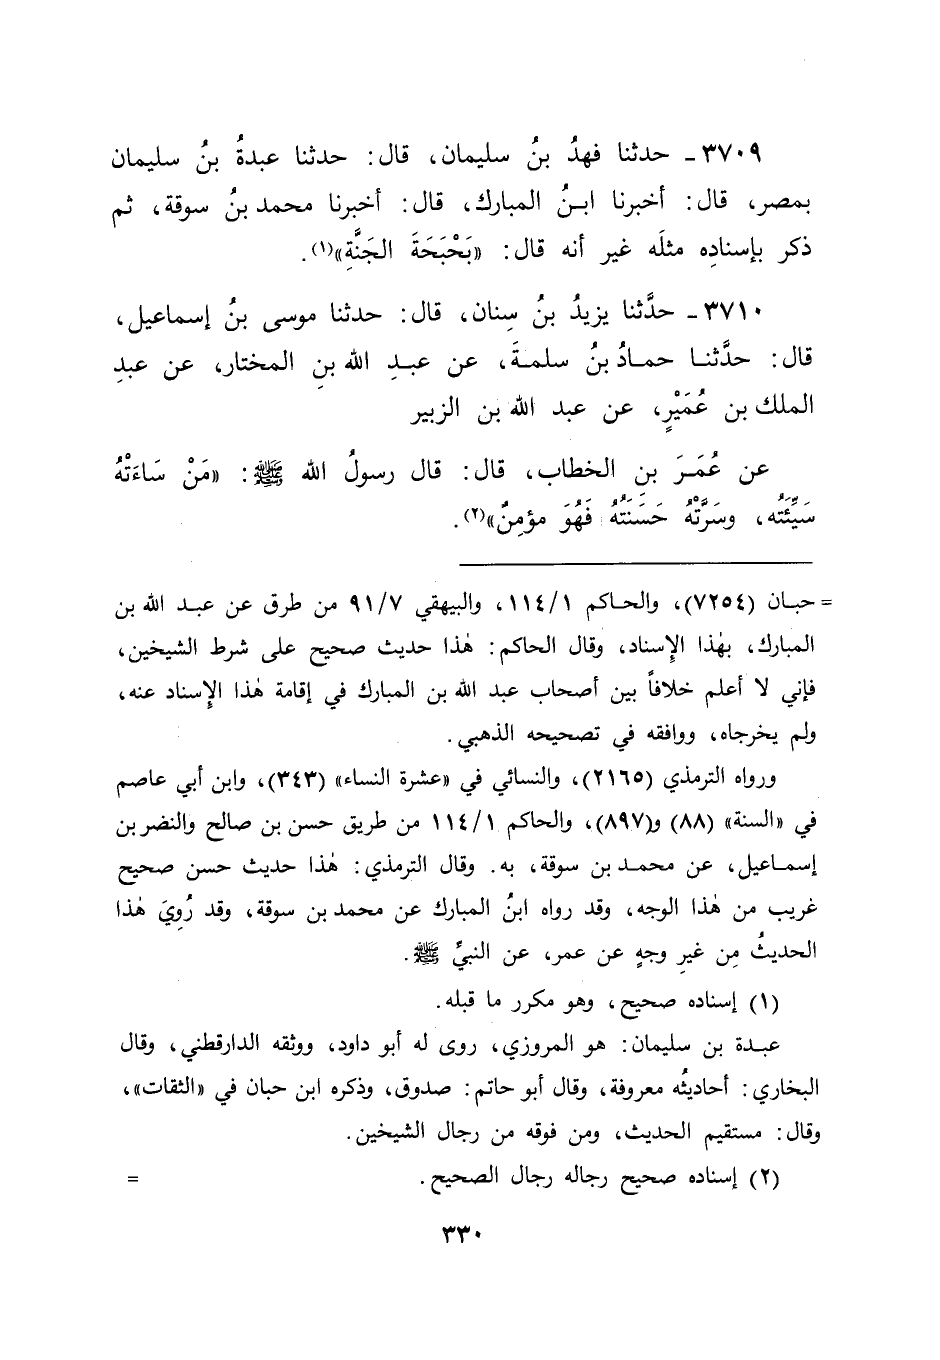 ٣٧٠٩ ـ حدثنا فهدُ بنُ سليمان، قال: حدثنا عبدةُ بنُ سليمان
بمصر، قال: أخبرنا ابنُ المبارك، قال: أخبرنا محمد بنُ سوقة، ثم
ذكر بإسنادِه مثلَه غير أنه قال: «بَحْبَحَةَ الجَنَّةِ»(١).
٣٧١٠ ـ حدَّثنا يزيدُ بنُ سِنان، قال: حدثنا موسى بنُ إسماعيل،
قال: حدَّثنا حمادُ بنُ سلمةَ، عن عبدِ الله بنِ المختار، عن عبدِ
الملك بن عُمَيْرٍ، عن عبد الله بن الزبير
عن عُمَرَ بن الخطاب، قال: قال رسولُ الله ﷺ: «مَنْ سَاءَتْهُ
سَيِّئَتُه، وسَرَّتْهُ حَسَنَتُهُ فَهُوَ مؤمِنٌ»(٢).
= حبان (٧٢٥٤)، والحاكم ١١٤/١، والبيهقي ٩١/٧ من طرق عن عبد الله بن
المبارك، بهٰذا الإِسناد، وقال الحاكم: هٰذا حديث صحيح على شرط الشيخين،
فإني لا أعلم خلافاً بين أصحاب عبد الله بن المبارك في إقامة هٰذا الإِسناد عنه،
ولم يخرجاه، ووافقه في تصحيحه الذهبي.
ورواه الترمذي (٢١٦٥)، والنسائي في «عشرة النساء» (٣٤٣)، وابن أبي عاصم
في «السنة» (٨٨) و(٨٩٧)، والحاكم ١١٤/١ من طريق حسن بن صالح والنضر بن
إسماعيل، عن محمد بن سوقة، به. وقال الترمذي: هٰذا حديث حسن صحيح
غريب من هٰذا الوجه، وقد رواه ابنُ المبارك عن محمد بن سوقة، وقد رُوِيَ هٰذا
الحديثُ مِن غيرِ وجهٍ عن عمر، عن النبيِّ ﷺ.
(١) إسناده صحيح، وهو مكرر ما قبله.
عبدة بن سليمان: هو المروزي، روى له أبو داود، ووثقه الدارقطني، وقال
البخاري: أحاديثُه معروفة، وقال أبو حاتم: صدوق، وذكره ابن حبان في «الثقات»،
وقال: مستقيم الحديث، ومن فوقه من رجال الشيخين.
(٢) إسناده صحيح رجاله رجال الصحيح. =
٣٣٠